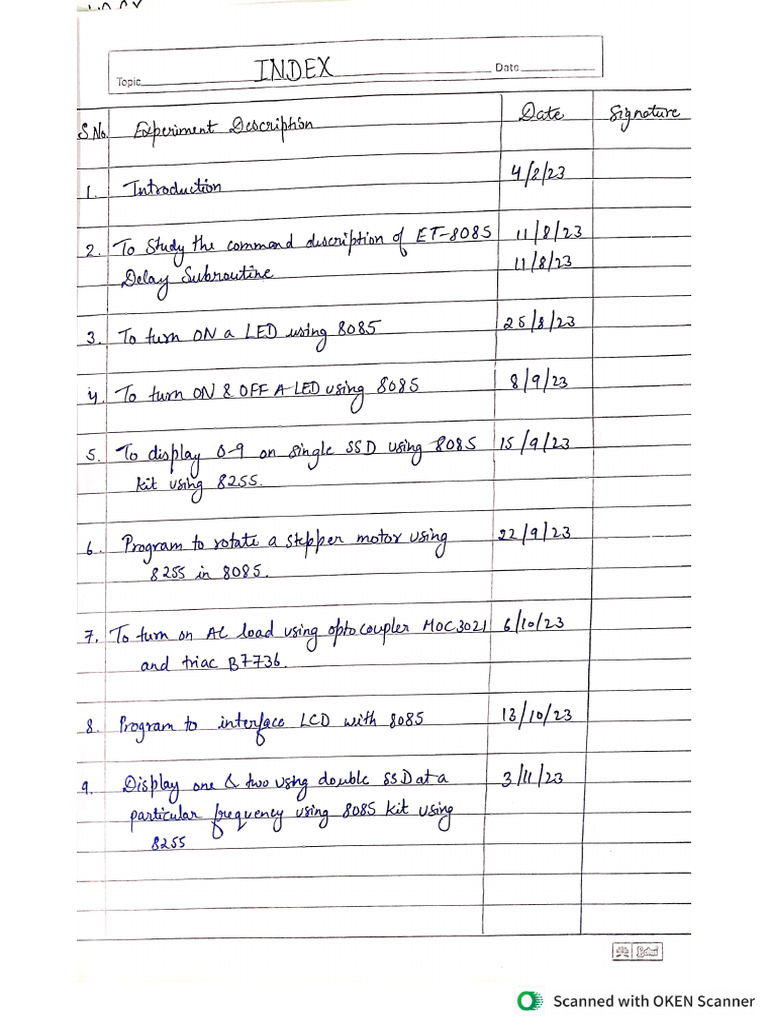 INDEX
Topic Date
S No. Experiment Description Date Signature
1. Introduction 4/8/23
2. To Study the command description of ET-8085 11/8/23
Delay Subroutine 11/8/23
3. To turn ON a LED using 8085 25/8/23
4. To turn ON & OFF A LED using 8085 8/9/23
5. To display 0-9 on single SSD using 8085 15/9/23
kit using 8255.
6. Program to rotate a stepper motor using 22/9/23
8255 in 8085.
7. To turn on AC load using optocoupler MOC3021 6/10/23
and triac B7736.
8. Program to interface LCD with 8085 13/10/23
9. Display one & two using double SSD at a 3/11/23
particular frequency using 8085 kit using
8255
Scanned with OKEN Scanner